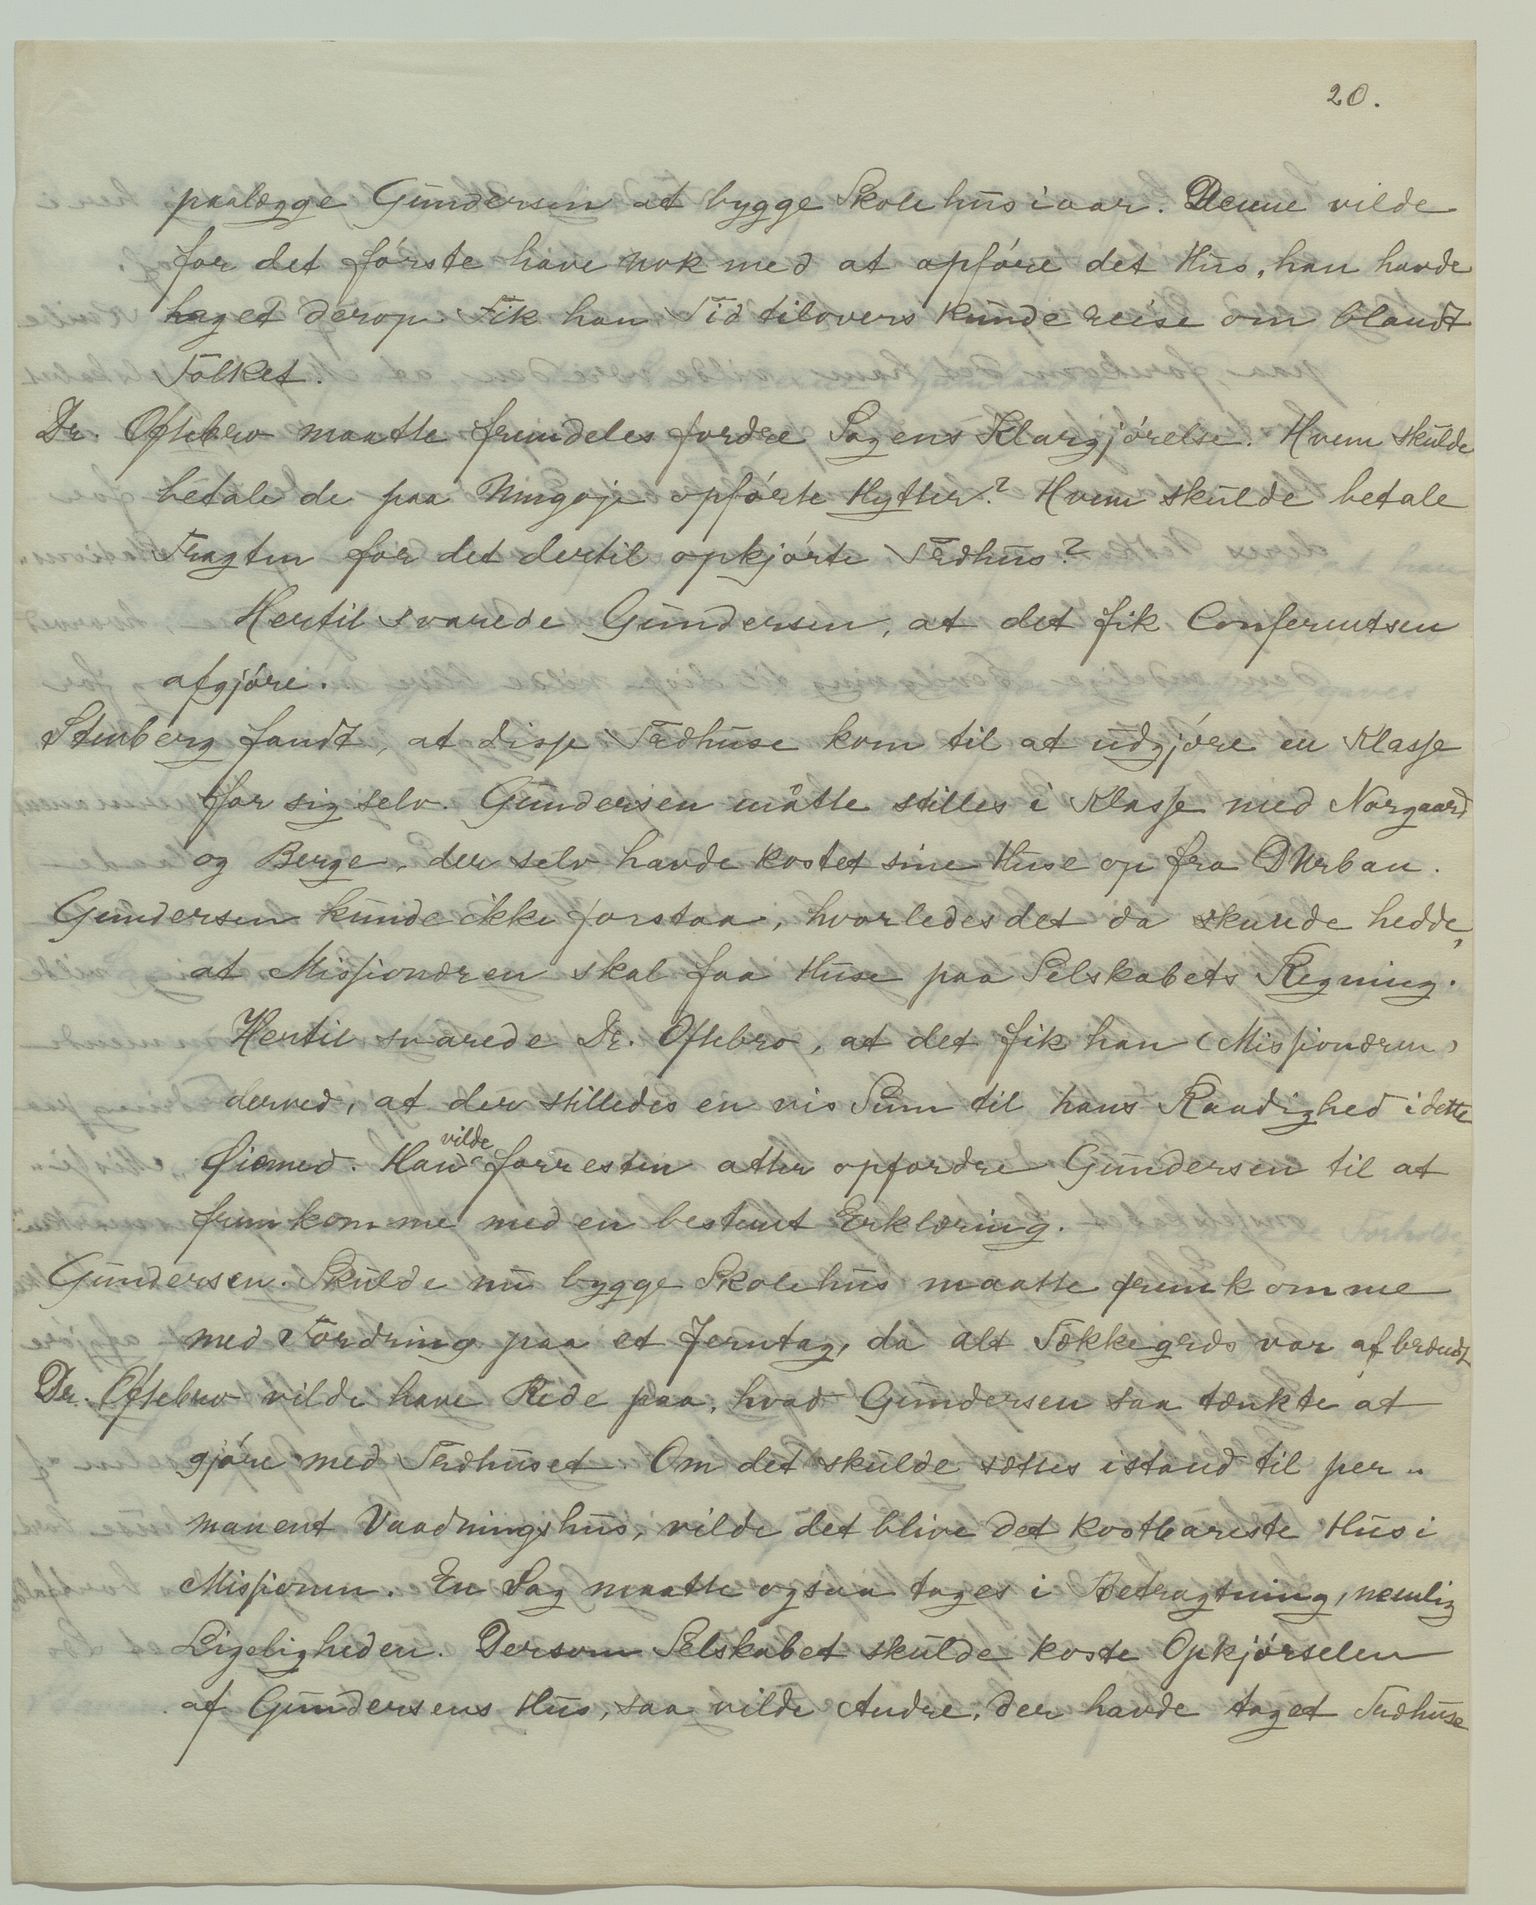 20.
paalægge Gundersen at bygge Skolehus i aar. Denne vilde
for det første have nok med at opføre det Hus, han havde
taget derop. Fik han Tid tilovers kunde reise om blandt
Folket.
Dr. Oftebro maatte fremdeles fordre Sagens Klargjørelse. Hvem skulde
betale de paa Ungoje opførte Hytter? Hvem skulde betale
Fragten for det dertil opkjørte Træhus?
Hertil svarede Gundersen, at det fik Conferentsen
afgjøre.
Stenberg fandt, at disse Træhuse kom til at udgjøre en Klasse
for sig selv. Gundersen måtte stilles i Klasse med Norgaard
og Berge, der selv havde kostet sine Huse op fra DUrban.
Gundersen kunde ikke forstaa, hvorledes det da skunde hedde,
at Missionæren skal faa Huse paa Selskabets Regning.
Hertil svarede Dr. Oftebro, at det fik han (Missionæren)
derved, at der stilledes en vis Sum til hans Raadighed i dette
Øiemed. Han vilde forresten atter opfordre Gundersen til at
fremkomme med en bestemt Erklæring.
Gundersen. Skulde nu bygge Skolehus maatte fremkomme
med Fordring paa et Jerntag, da alt Tækkegræs var afbrændt
Dr. Oftebro vilde have Rede paa, hvad Gundersen saa tænkte at
gjøre med Træhuset. Om det skulde sættes istand til per-
manent Vaadningshus, vilde det blive det kostbareste Hus i
Missionen. En Sag maatte ogsaa tages i Betragtning, nemlig
Ligeligheden. Dersom Selskabet skulde koste Opkjørselen
af Gundersens Hus, saa vilde Andre, der havde taget Træhuse